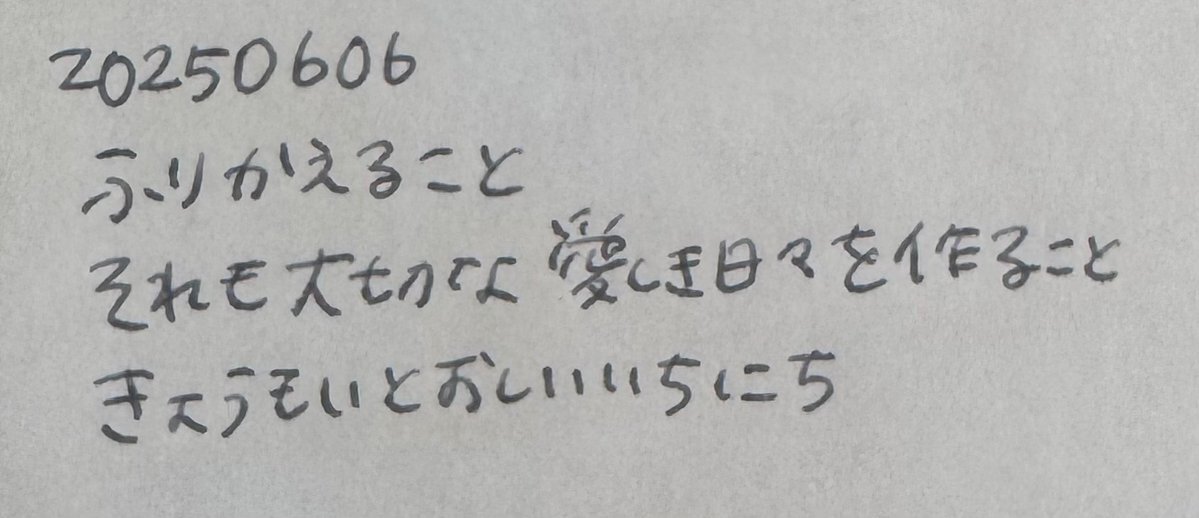 20250606
ふりかえること
それも大切な愛しき日々を作ること
きょうもいとおしいいちにち